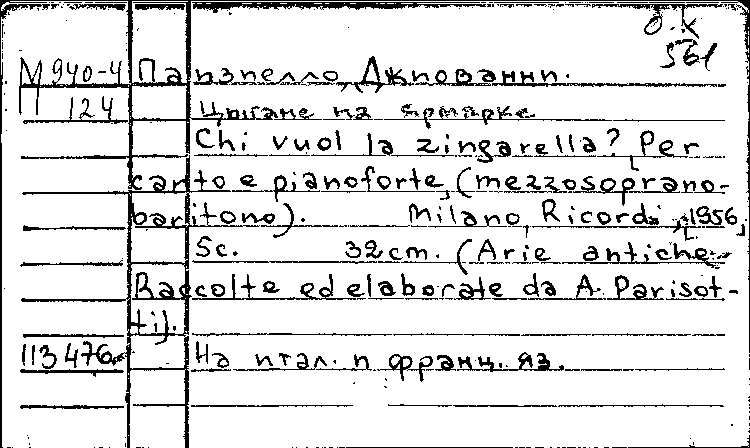 О.К
561
М 940-4 Паизиелло, Джиованни.
П 124 Цыгане на ярмарке
Chi vuol la zingarella? [Per
canto e pianoforte] (mezzosoprano-
baritono). Milano, Ricordi, [1956]
5c. 32cm. (Arie antiche.
Raccolte ed elaborate da A. Parisot-
ti).
113476 На итал. и франц. яз.